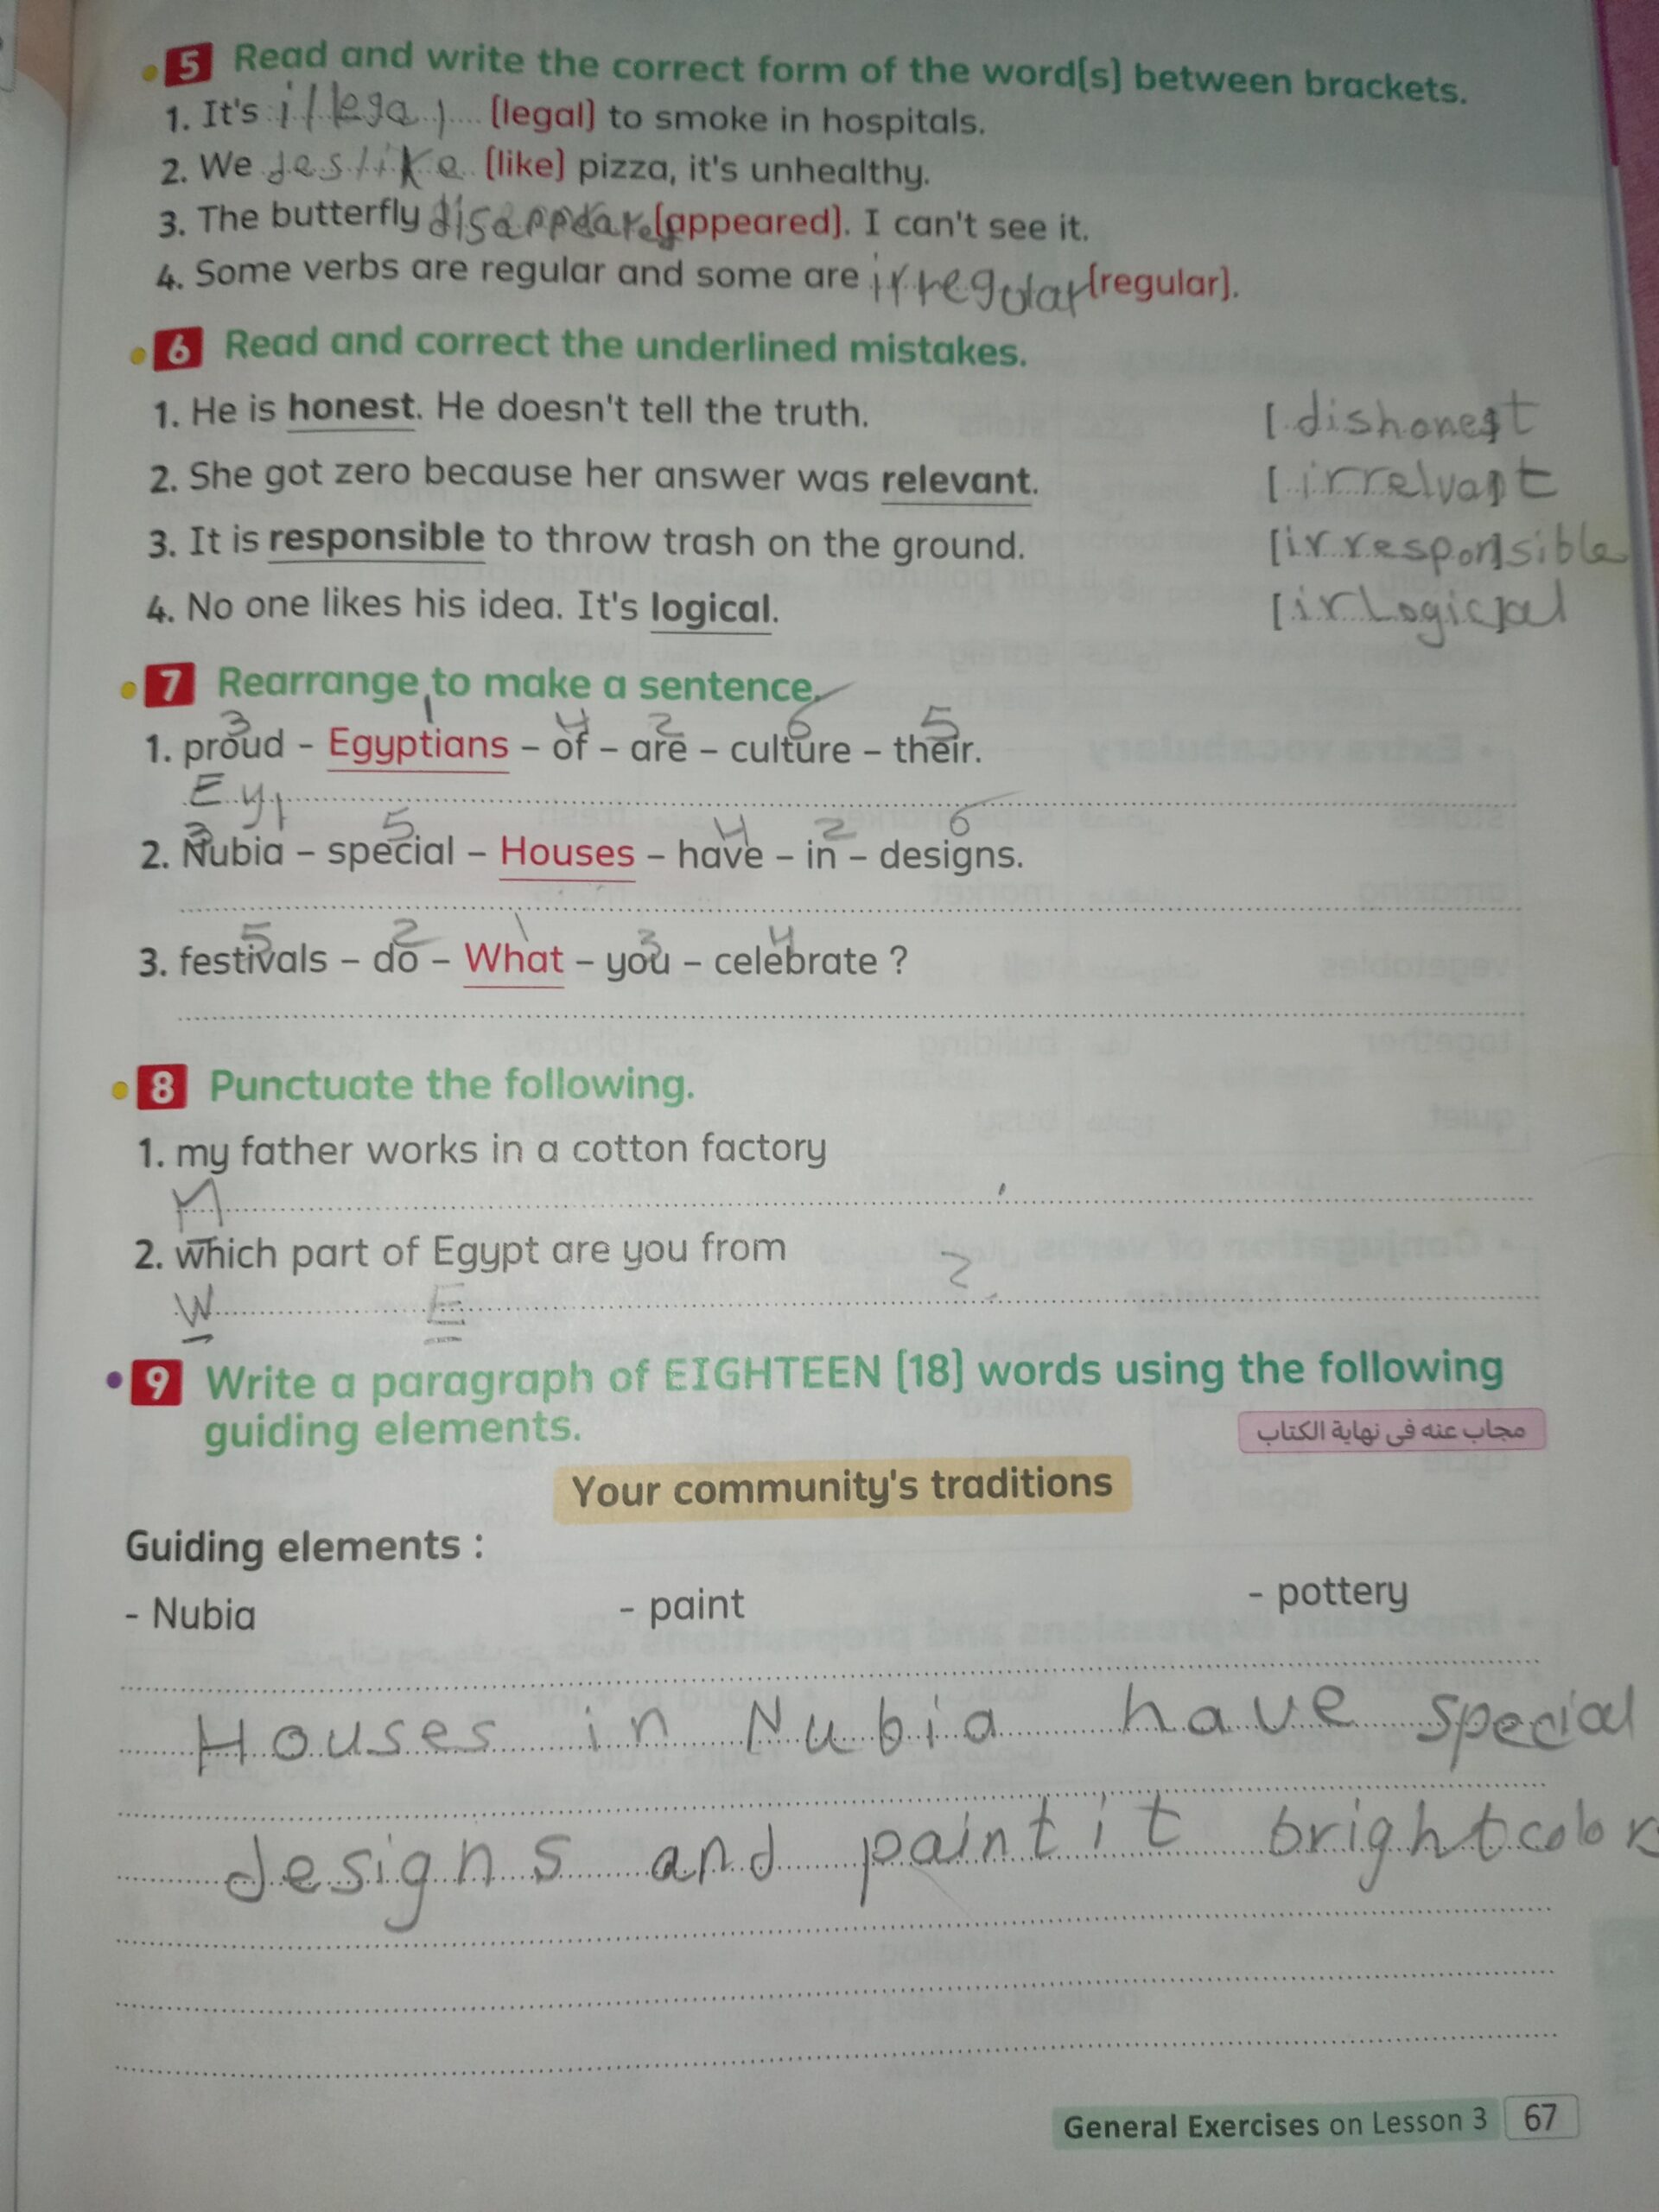 5 Read and write the correct form of the word(s) between brackets.
1. It's illegal (legal) to smoke in hospitals.
2. We deslike (like) pizza, it's unhealthy.
3. The butterfly disappeared (appeared). I can't see it.
4. Some verbs are regular and some are irregular (regular).
6 Read and correct the underlined mistakes.
1. He is honest. He doesn't tell the truth. [dishonest]
2. She got zero because her answer was relevant. [irrelvant]
3. It is responsible to throw trash on the ground. [irresponsible]
4. No one likes his idea. It's logical. [irLogical]
7 Rearrange to make a sentence.
3 1 4 2 6 5
1. proud – Egyptians – of – are – culture – their.
Ey
3 5 4 2 6
2. Nubia – special – Houses – have – in – designs.
5 2 1 3 4
3. festivals – do – What – you – celebrate ?
8 Punctuate the following.
1. my father works in a cotton factory
M .
2. which part of Egypt are you from
W E ?
9 Write a paragraph of EIGHTEEN (18) words using the following
guiding elements.
مجاب عنه فى نهاية الكتاب
Your community's traditions
Guiding elements :
- Nubia - paint - pottery
Houses in Nubia have special
designs and paint it bright colors
General Exercises on Lesson 3 67